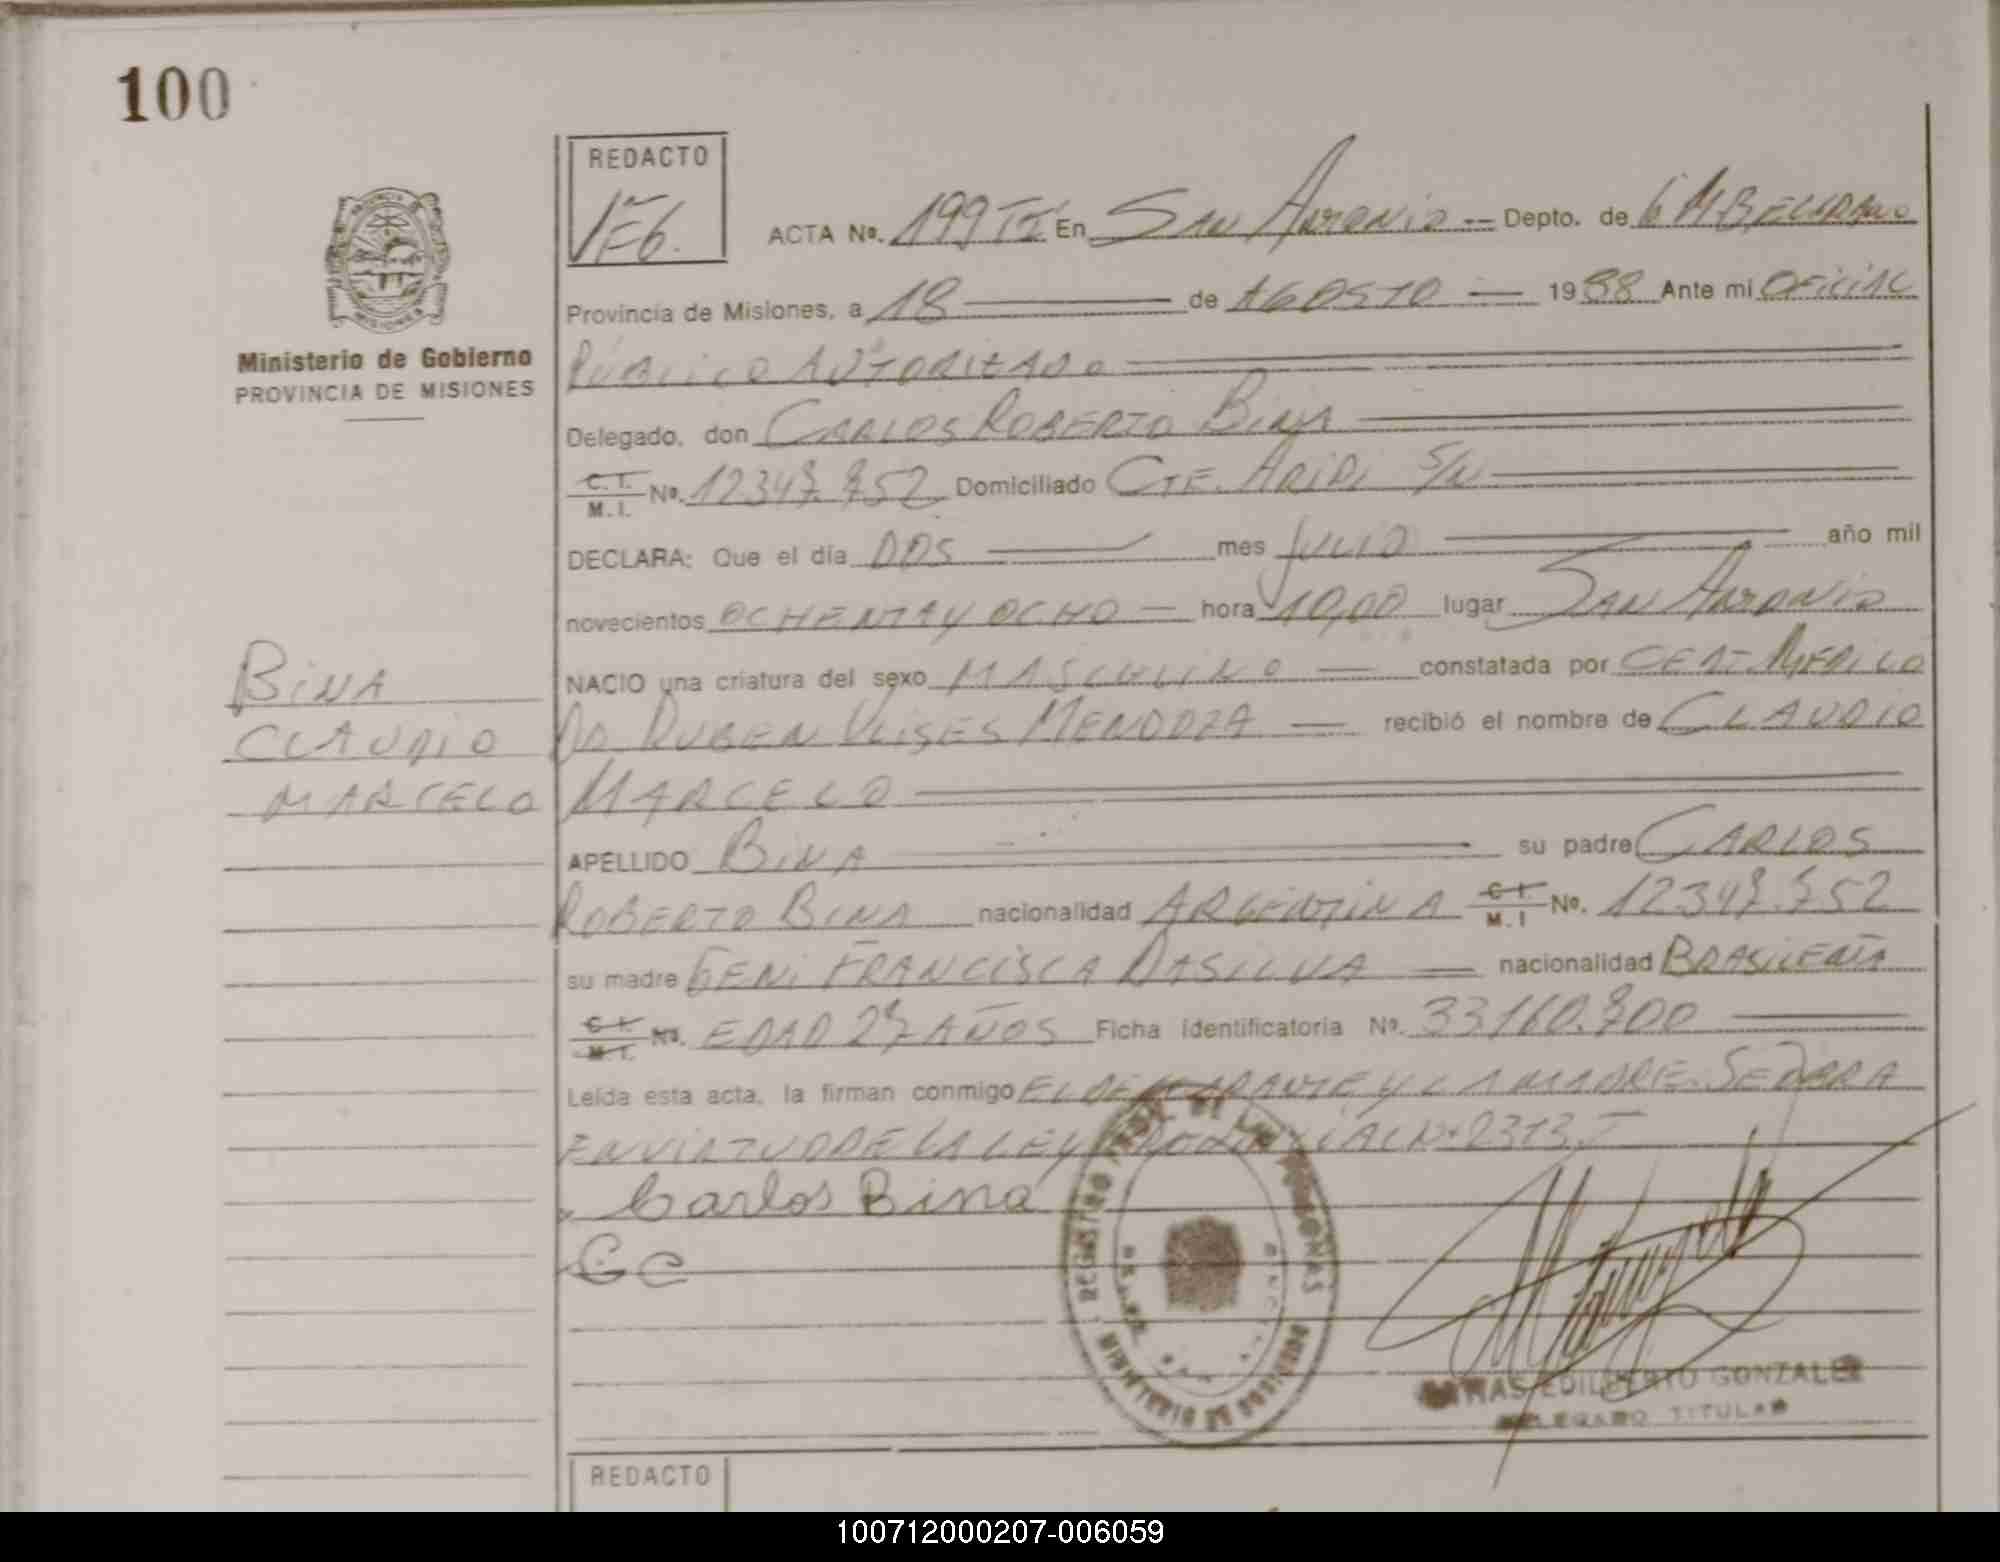 100
REDACTO
ACTA Nº. 199 En SAN ANTONIO Depto. de G M BELGRANO
Provincia de Misiones, a 18 de AGOSTO 1988 Ante mi OFICIAL
PUBLICO AUTORIZADO
Delegado, don CARLOS ROBERTO BINA
C.I. M.I. Nº. 12347.752 Domiciliado CTE. ARIDI S/N
DECLARA: Que el día DOS mes JULIO año mil
novecientos OCHENTA Y OCHO hora 10,00 lugar SAN ANTONIO
NACIO una criatura del sexo MASCULINO constatada por CERT. MEDICO
DR RUBEN ULISES MENDOZA recibió el nombre de CLAUDIO
MARCELO
APELLIDO BINA su padre CARLOS
ROBERTO BINA nacionalidad ARGENTINA C.I. M.I Nº. 12347.752
su madre GENI FRANCISCA DASILVA nacionalidad BRASILEÑA
C.I. M.I. Nº. EDAD 27 AÑOS Ficha identificatoria Nº. 33160.700
Leída esta acta, la firman conmigo EL DECLARANTE Y LA MADRE. SE LABRA
EN VIRTUD DE LA LEY PROVINCIAL Nº 2313.
Carlos Bina
Ge
Ministerio de Gobierno
PROVINCIA DE MISIONES
BINA
CLAUDIO
MARCELO
REGISTRO DE LAS PERSONAS
MINISTERIO DE GOBIERNO
MISIONES
EDILBERTO GONZALEZ
DELEGADO TITULAR
REDACTO
100712000207-006059